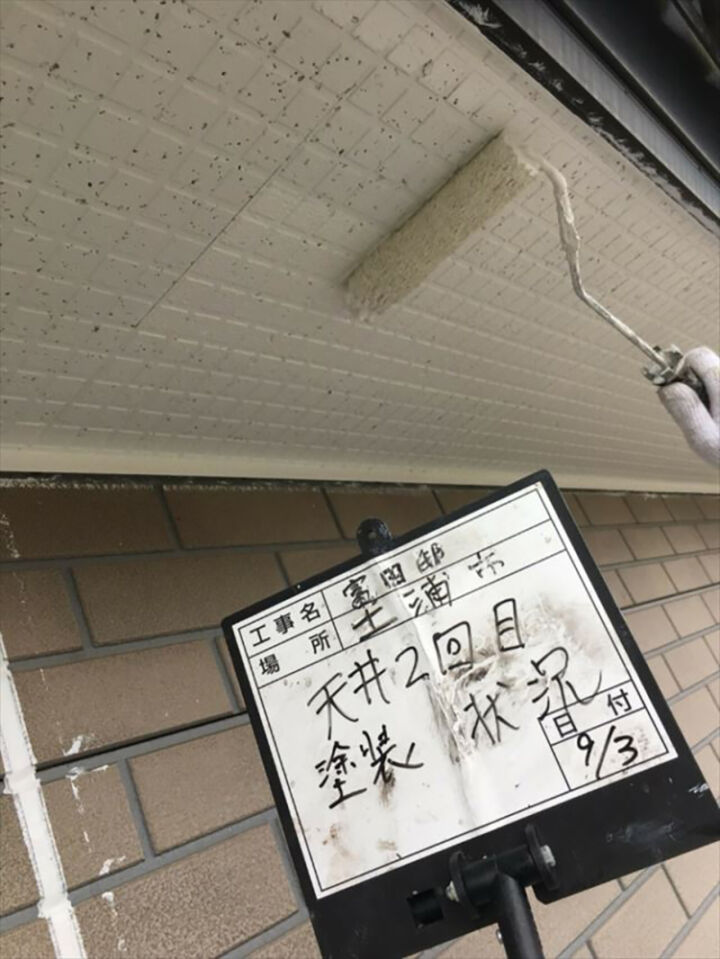 工事名 富田邸
場所 土浦市
天井2回目
塗装 状況
日付
9/3